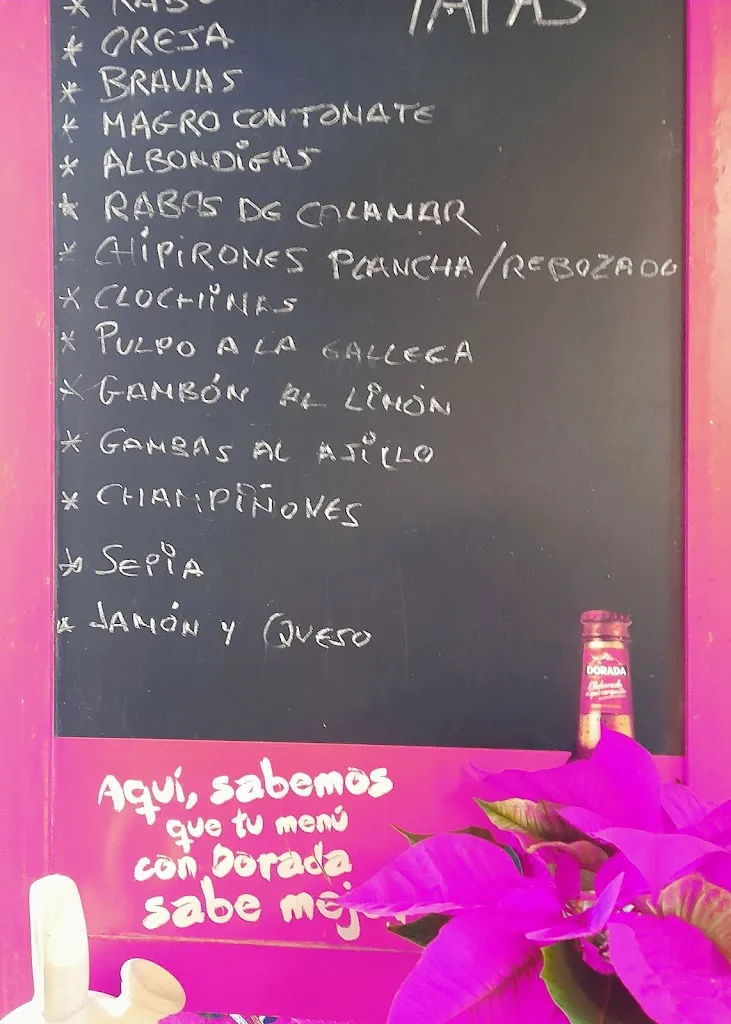 TAPAS
* RABO
* OREJA
* BRAVAS
* MAGRO CON TOMATE
* ALBONDIGAS
* RABAS DE CALAMAR
* CHIPIRONES PLANCHA/REBOZADO
* CLOCHINAS
* PULPO A LA GALLEGA
* GAMBÓN AL LIMÓN
* GAMBAS AL AJILLO
* CHAMPIÑONES
* SEPIA
* JAMÓN Y QUESO
DORADA
Aquí, sabemos
que tu menú
con Dorada
sabe mej